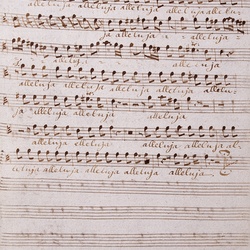 alleluja alleluja alleluja alleluja
ja alleluja a alleluja
alleluja alle luja
alleluja alleluja alleluja allelu
ja alleluja alleluja alleluja
alleluja alleluja alleluja al
leluja alleluja alleluja alleluja